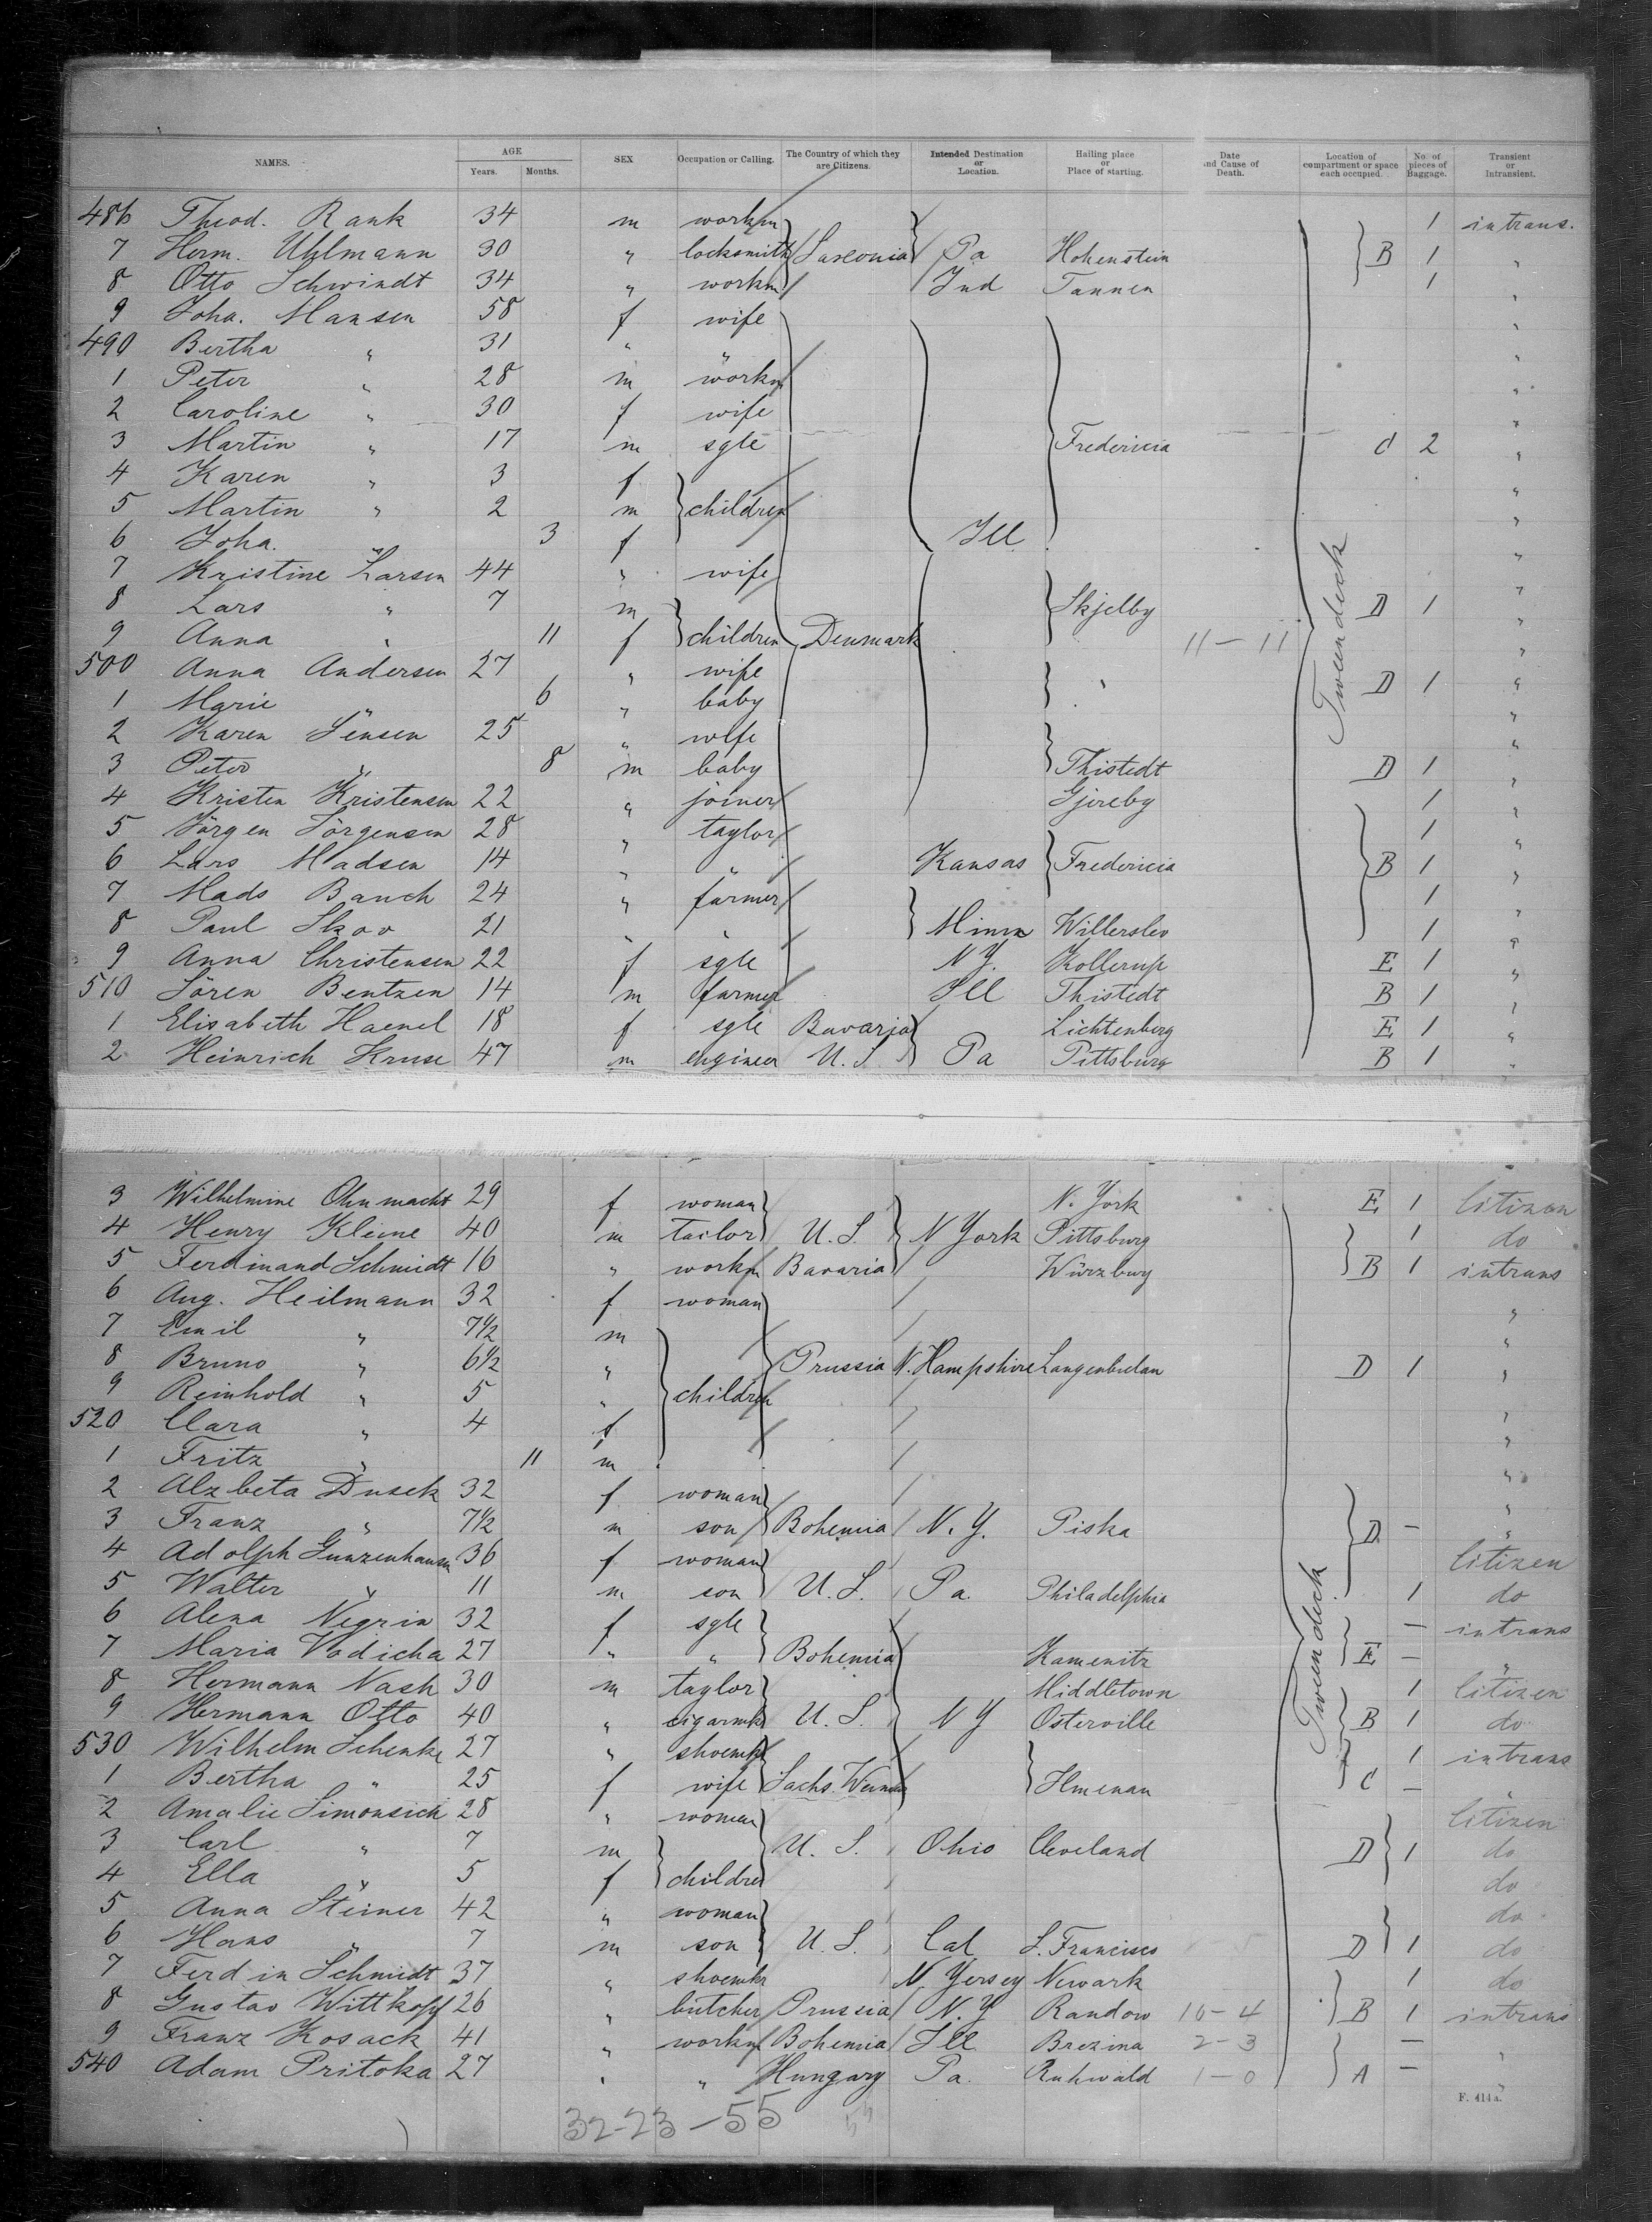 NAMES. AGE Years. Months. SEX Occupation or Calling. The Country of which they are Citizens. Intended Destination or Location. Hailing place or Place of starting. Date and Cause of Death. Location of compartment or space each occupied. No. of pieces of Baggage. Transient or Intransient.
486 Theod. Rank 34 m workm 1 intrans.
7 Herm. Uhlmann 30 " locksmith Saxonia Pa Hohenstein B 1 "
8 Otto Schwindt 34 " workm Ind Tannen 1 "
9 Joha. Hansen 58 f wife "
490 Bertha " 31 " " "
1 Peter " 28 m workm "
2 Caroline " 30 f wife "
3 Martin " 17 m sgle Fredericia C 2 "
4 Karen " 3 f "
5 Martin " 2 m children "
6 Joha. " 3 f Ill "
7 Kristine Larsen 44 " wife "
8 Lars " 7 m Skjelby D 1 "
9 Anna " 11 f children Denmark 11-11 "
500 Anna Andersen 27 " wife " D 1 "
1 Marie " 6 " baby "
2 Karen Jensen 25 " wife "
3 Peter " 8 m baby Thistedt D 1 "
4 Kristen Kristensen 22 " joiner Gjereby 1 "
5 Jörgen Jörgensen 28 " taylor 1 "
6 Lars Madsen 14 " " Kansas Fredericia B 1 "
7 Mads Bauch 24 " farmer 1 "
8 Paul Skov 21 " " Minn Willerslev 1 "
9 Anna Christensen 22 f sgle N.Y. Kollerup E 1 "
510 Sören Bentzen 14 m farmer Ill Thistedt B 1 "
1 Elisabeth Haenel 18 f sgle Bavaria Lichtenberg E 1 "
2 Heinrich Kruse 47 m engineer U.S. Pa Pittsburg B 1 "
Tweendeck
3 Wilhelmine Ohnmacht 29 f woman N. York E 1 Citizen
4 Henry Kleine 40 m tailor U.S. N York Pittsburg 1 do
5 Ferdinand Schmidt 16 " workm Bavaria Würzburg B 1 intrans
6 Aug. Heilmann 32 f woman "
7 Emil " 7½ m "
8 Bruno " 6½ " Prussia N. Hampshire Langenbielan D 1 "
9 Reinhold " 5 " children "
520 Clara " 4 f "
1 Fritz " 11 m "
2 Alzbeta Dusek 32 f woman "
3 Franz " 7½ m son Bohemia N.Y. Piska D - "
4 Adolph Gunzenhausen 36 f woman Citizen
5 Walter " 11 m son U.S. Pa. Philadelphia 1 do
6 Alena Negrin 32 f sgle - intrans
7 Maria Vodicha 27 " " Bohemia Kamenitz E - "
8 Hermann Nash 30 m taylor Middletown 1 Citizen
9 Hermann Otto 40 " cigarmkr U.S. N Y Osterville B 1 do
530 Wilhelm Schenke 27 " shoemkr 1 intrans
1 Bertha " 25 f wife Sachs. Weimar Ilmenau C - "
2 Amalie Simonsick 28 " woman Citizen
3 Carl " 7 m U.S. Ohio Cleveland D 1 do
4 Ella " 5 f children do
5 Anna Steiner 42 " woman do
6 Hans " 7 m son U.S. Cal S. Francisco D 1 do
7 Ferdin Schmidt 37 " shoemkr N. Yersey Newark 1 do
8 Gustav Wittkopf 26 " butcher Prussia N.Y Randow 10-4 B 1 intrans
9 Franz Kosack 41 " workm Bohemia Ill Brezina 2-3 - "
540 Adam Pritoka 27 " " Hungary Pa. Ruhwald 1-0 A - "
Tweendeck
F. 414 a.
32-23-55